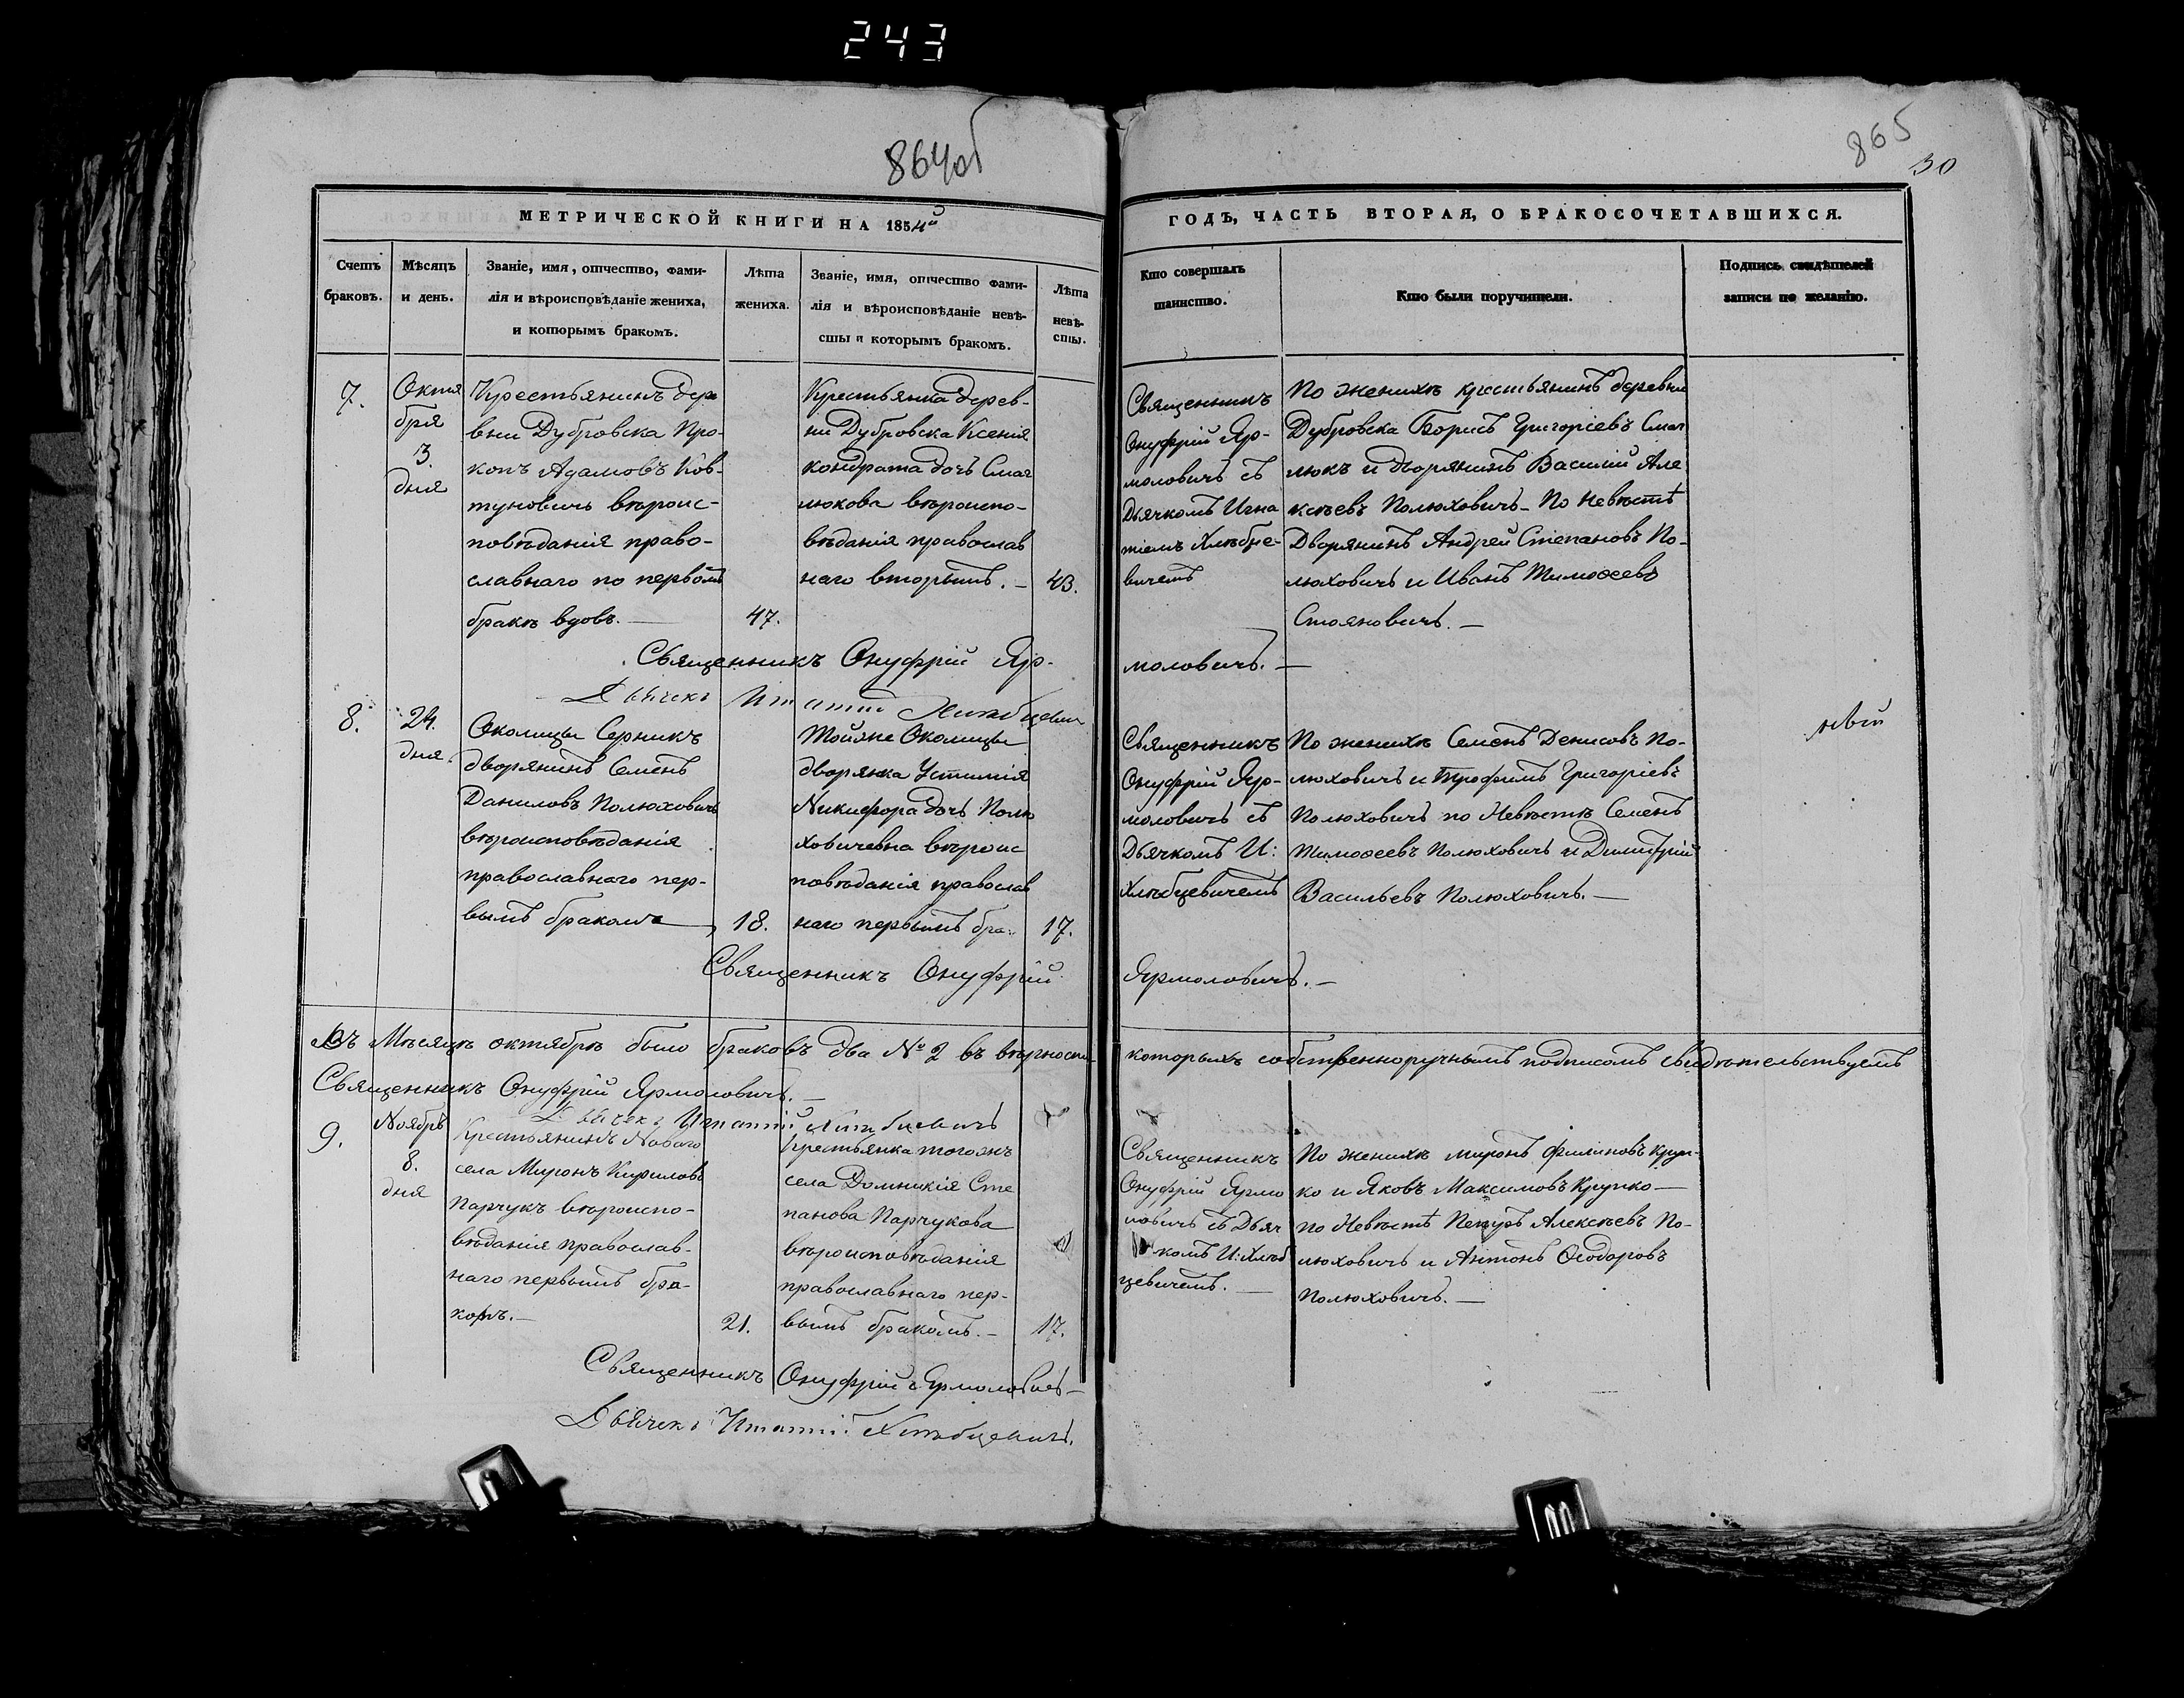 243
864об
865
30
МЕТРИЧЕСКОЙ КНИГИ НА 1854й
ГОДЪ, ЧАСТЬ ВТОРАЯ, О БРАКОСОЧЕТАВШИХСЯ.
Счетъ
браковъ.
Мѣсяцъ
и день.
Званіе, имя, отчество, фами-
лія и вѣроисповѣданіе жениха,
и которымъ бракомъ.
Лѣта
жениха.
Званіе, имя, отчество фами-
лія и вѣроисповѣданіе невѣ-
сты и которымъ бракомъ.
Лѣта
невѣ-
сты.
Кто совершалъ
таинство.
Кто были поручители.
Подпись свидѣтелей
записи по желанію.
7.
Октя
бря
3.
дня
Крестьянинъ дере
вни Дубровска Про-
копъ Адамовъ Ков-
туновичъ вѣроис-
повѣданія право-
славнаго по первомъ
бракѣ вдовъ.
47.
Крестьянка дерев-
ни Дубровска Ксенія
кондрата дочь Смаг
люкова вѣроиспо-
вѣданія православ
наго вторымъ. –
43.
Священникъ
Онуфрій Яр-
моловичъ съ
Дьячкомъ Игна
тіемъ Хлѣбце-
вичемъ
По женихѣ крестьянинъ деревни
Дубровска Борисъ Григоріевъ Смаг
люкъ и дворянинъ Василій Але
ксѣевъ Полюховичъ – По Невѣстѣ
Дворянинъ Андрей Степановъ По-
люховичъ и Иванъ Тимоѳеевъ
Стояновичъ. –
Священникъ Онуфрій Яр-
моловичъ. –
Дьячекъ Игнатій Хлѣбцевич
8.
24.
дня
Околицы Серникъ
дворянинъ Семенъ
Даниловъ Полюховичъ
вѣроисповѣданія
православнаго пер-
вымъ бракомъ
18.
Тойже Околицы
дворянка Устинія
Никифора дочь Полю
ховичевна вѣроис
повѣданія православ
наго первымъ бра:
17.
Священникъ
Онуфрій Яр-
моловичъ съ
Дьячкомъ И:
Хлѣбцевичемъ
По женихѣ Семенъ Денисовъ По-
люховичъ и Трофимъ Григоріевъ
Полюховичъ по Невѣстѣ Семенъ
Тимоѳеевъ Полюховичъ и Димитрій
Васильевъ Полюховичъ. –
Священникъ Онуфрій
Ярмоловичъ. –
Въ Мѣсяцѣ октябрѣ было браковъ два № 2 въ вѣрности
которыхъ собственноручнымъ подписомъ свидѣтельствуемъ
Священникъ Онуфрій Ярмоловичъ. –
Дьячекъ Игнатій Хлѣбцевичъ
9.
Ноябрь
8.
дня
Крестьянинъ Новаго
села Миронъ Кириловъ
Парчукъ вѣроиспо-
вѣданія православ-
наго первымъ бра-
комъ. –
21.
Крестьянка тогожъ
села Домникія Сте
панова Парчукова
вѣроисповѣданія
православнаго пер-
вымъ бракомъ. –
17.
Священникъ
Онуфрій Ярмо
ловичъ съ Дьяч
комъ И: Хлѣб
цевичемъ. –
По женихѣ миронъ филиповъ Круп-
ко и Яковъ Максимовъ Крупко –
по Невѣстѣ Петръ Алексѣевъ По-
люховичъ и Антонъ Ѳеодоровъ
Полюховичъ. –
Священникъ Онуфрій Ярмоловичъ –
Дьячекъ Игнатій Хлѣбцевичъ.